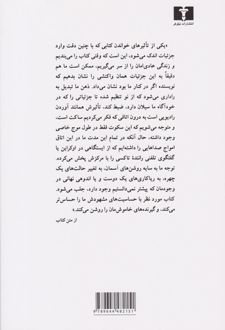 انتشارات نیلوفر
«یکی از تأثیرهای خواندن کتابی که با چنین دقت وارد
جزئیات اندک می‌شود، این است که وقتی کتاب را می‌بندیم
و زندگی عادی‌مان را از سر می‌گیریم، ممکن است ما هم
دقیقاً به این جزئیات همان واکنشی را نشان بدهیم که
نویسنده اگر در کنار ما بود نشان می‌داد. ذهن ما تبدیل به
راداری می‌شود که از نو تنظیم شده تا جزئیاتی را که در
خودآگاه ما سیلان دارد، ضبط کند، تأثیرش همانند آوردن
رادیویی است به درون اتاقی که فکر می‌کردیم ساکت است،
و متوجه می‌شویم که این سکوت فقط در طول موج خاصی
وجود داشته، حال آنکه در تمام این مدت ما در این اتاق
امواج صداهایی را داشته‌ایم که از ایستگاهی در اوکراین یا
گفتگوی تلفنی رانندهٔ تاکسی را با مرکزش پخش می‌کرده.
توجه ما به سایه روشن‌های آسمان، به تغییر حالت‌های یک
چهره، به ریاکاری‌های یک دوست و یا اندوهی نهانی در
وجودمان که پیشتر نمی‌دانستیم وجود دارد، جلب می‌شود.
کتاب مورد نظر با حساسیت‌های مشهودش ما را حساس‌تر
می‌کند، و گیرنده‌های خاموش‌مان را روشن می‌کند».
از متن کتاب